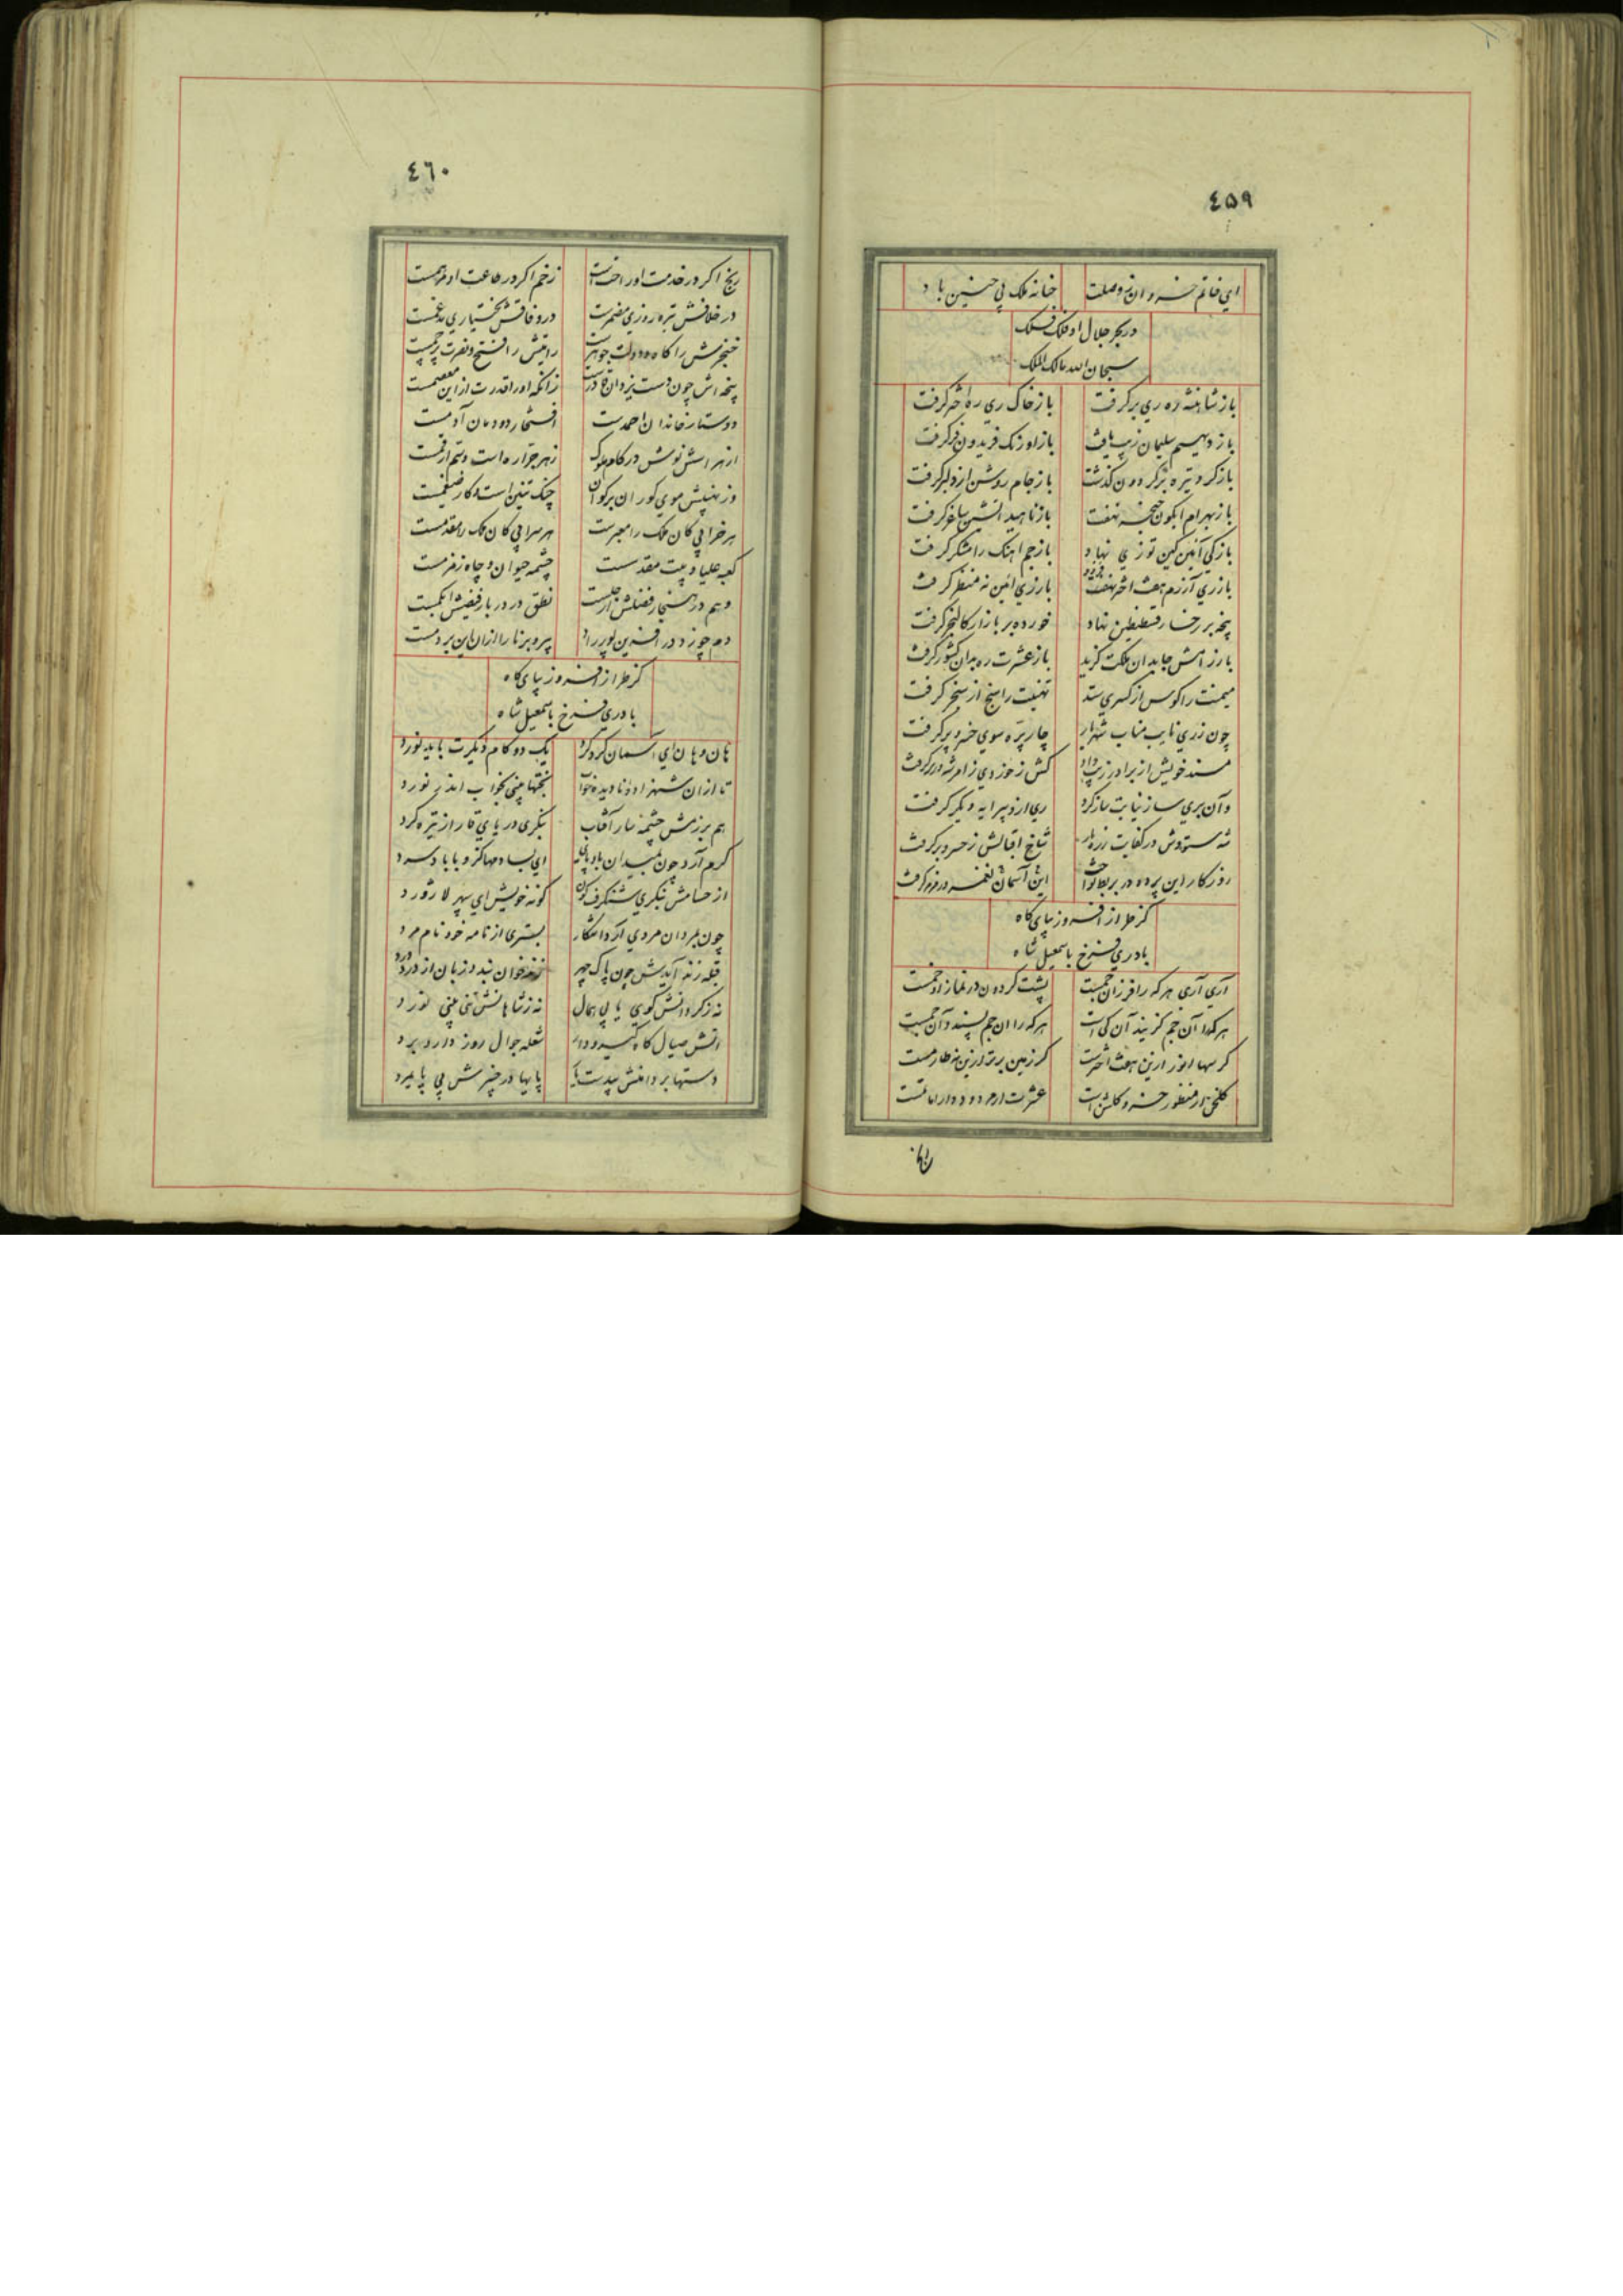 ٤٥٩
اي خاتم خسروان ز وصلت خانه ملک پی حسین باد
در بحر جلال او فلک فلک
سبحان الله مالک الملک
باز شاهنشه ره ري برگرفت باز خاک ري ره اختر گرفت
باز ديهيم سليمان زيب يافت باز اورنک فريدون فر گرفت
باز کرد تيره بر گردون گذشت باز جام روشن از دلبر گرفت
باز بهرام ابگون خنجر نهفت باز ناهيد اتشين ساغر گرفت
باز کي آئين کين توزي نهاد باز جم اهنک رامشگر گرفت
باز ري آزرم هفت اختر باز ري آئين نه منظر گرفت
پنجه بر رخسار قسطنطين نهاد خورده بر بازار کالنجر گرفت
باز رامش جا بدان مملکت گزيد باز عشرت ره بدان کشور گرفت
ميمنت را کوس از کسري ستد تهنيت را سنج از سنجر گرفت
چون ز ري نايب مناب شهريار چار پره سوي خسرو پر گرفت
مسند خويش از برادر زيب داد کش ز خود وي زامر شه در بر گرفت
وآن بري ساز نيابت ساز کرد ري ازو پيرايه ديگر گرفت
شه ستودش در کفايت شاخ اقبالش ز خسرو بر گرفت
روزگار اين پرده در بربط نواخت اين آسمان نغمه در مزمر گرفت
گز طراز افسروز پاي گاه
با دري فرخ باسمعيل شاه
آري آري هر که را فرزان جمست پشت گردون در نماز او خمست
هر کرا آن جم گزيند آن کي است هر که را ان جم پسندد آن جمست
گر سها انور ازين هفت اخترست گر زمين برتر ازين نه طارمست
گلخن از منظور خسرو گلشن است عشرت ار مردود دارا ماتمست
٤٦٠
رنج اگر در خدمت او راحت است زخم اگر در طاعت او مرهمست
در خلافش تيره روزي مضمرست در وفاقش بختياري مدغمست
خنجرش را گاه دولت جوهرست رايتش را فتح و نصرت پرچمست
پنجه اش چون دست يزدان قادرست زانکه او را قدرت از اين معصمست
دوستار خاندان احمدست افتخار دودمان آدمست
از نهر اسش نوش در کام ملوک زهر جراره است و سم ارقمست
وز نهيبش موي گوران بر گوان چنگ تنين است و کار ضيغمست
هر خرافي کان ملک را معبرست هر سرائي کان ملک را مقدمست
کعبه عليا و بيت مقدسست چشمه حيوان و چاه زمزمست
وهم در هنجار فضلش ارجلست نطق در دربار فيضش ابکمست
دم چو زد در افرين پور راد پير و برنا را از ان اين بر دمست
گز طراز افسروز پاي گاه
با دري فرخ باسمعيل شاه
هان و هان اي آسمان گرد گرد يک دو گام ديگرت بايد نورد
تا ازان شهزاده ناديده خواب بختها بيني بخواب اندر نورد
هم ببزمش چشمه سار آفتاب بنگري درياي قار از تيره گرد
گرم آرد چون بميدان بادپاي اي بسا دمها کزو با باد سرد
از حسامش بنگري شنگرف گون گونه خويش اي سپهر لاژورد
چون بمردان مردي آرد اشکار بستري از نامه خود نام مرد
قبله زنه آيدش چون پاک چهر
نه ز کردانش کوي يابي همال نه ز شاهانش تني بيني نورد
اتش صيال گاه گير و دار شعله جوال روز دار و برد
دستها بر دامنش بيدست پايها در چنبرش بي پايمرد